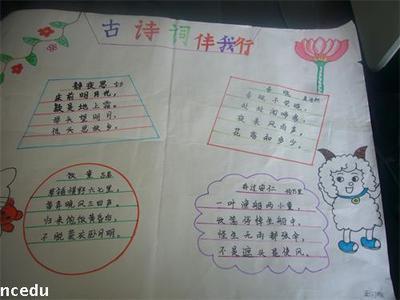 古诗词伴我行
静夜思 李白
床前明月光,
疑是地上霜。
举头望明月,
低头思故乡。
春晓 孟浩然
春眠不觉晓,
处处闻啼鸟。
夜来风雨声,
花落知多少。
牧童 吕岩
草铺横野六七里,
笛弄晚风三四声。
归来饱饭黄昏后,
不脱蓑衣卧月明。
舟过安仁 杨万里
一叶渔船两小童,
收篙停棹坐船中。
怪生无雨都张伞,
不是遮头是使风。
ncedu